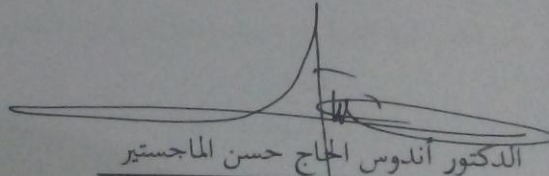 الدكتور أندوس الحاج حسن الماجستير